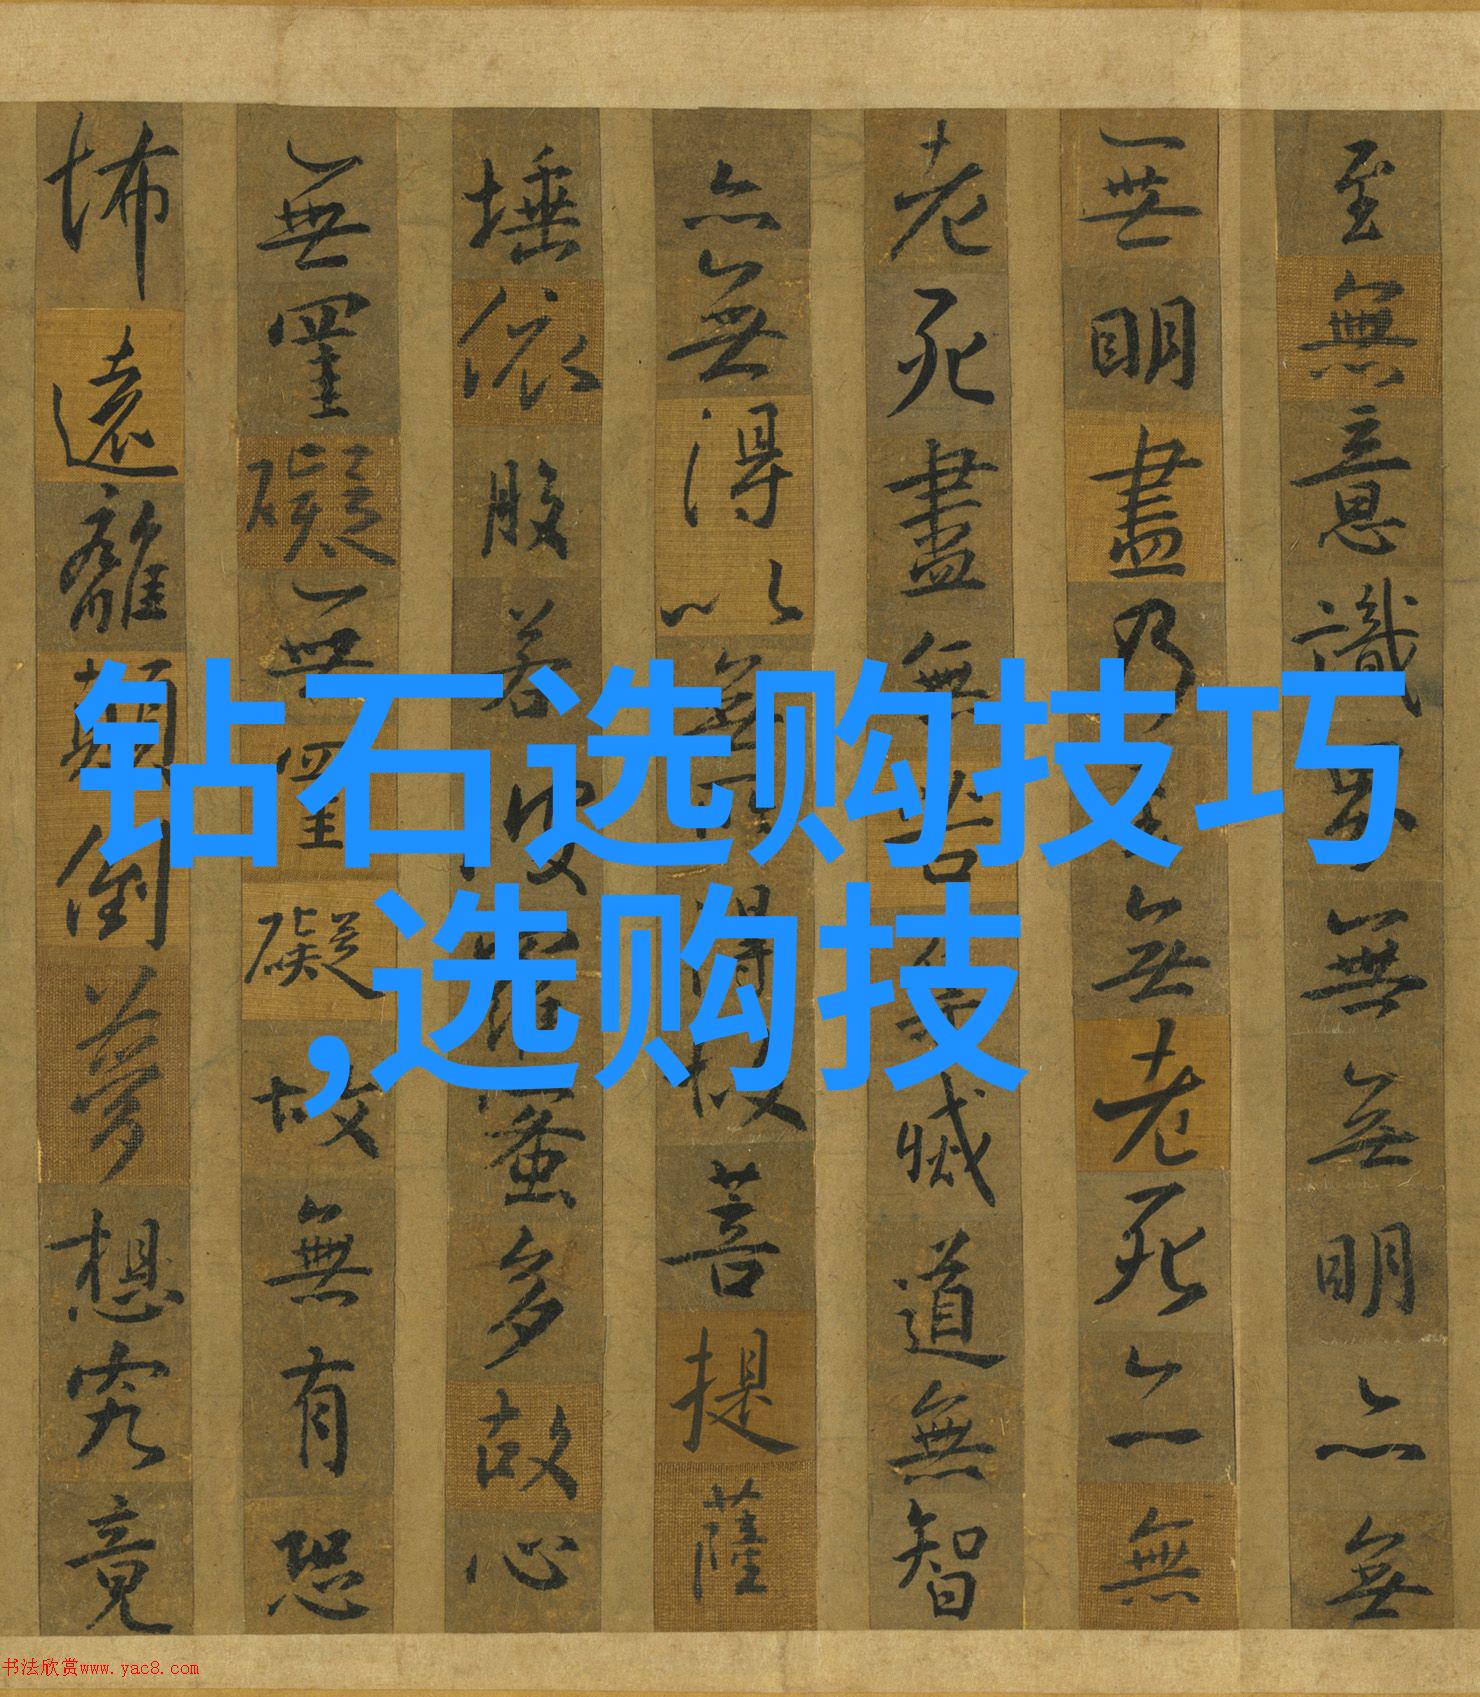 钻石选购技巧
,选购技
至無意識界無無明亦無
無明盡乃至無老死亦無
老死盡無苦集滅道無智
亦無得以無所得故菩提薩
埵依般若波羅蜜多故心
無罣礙無罣礙故無有恐
怖遠離顛倒夢想究竟
书法欣赏www.yac8.com